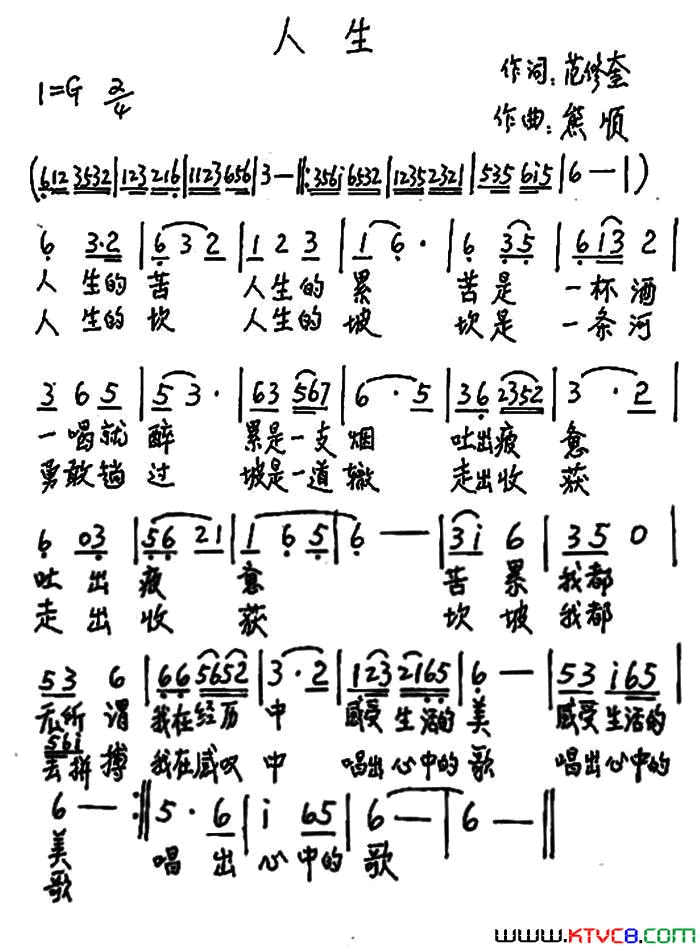 人生
作词：范修奎
1=G 2/4
作曲：熊顺
(612 3532|123 216|1123 656|3—‖:3561 6532|1235 2321|535 6i5|6—|)
6 3·2|6 3 2|1 2 3|1 6·|6 35|613 2|
人 生的 苦 人生的 累 苦是 一杯酒
人 生的 坎 人生的 坡 坎是 一条河
3 6 5|5 3·|63 567|6·5|36 2352|3·2|
一喝就 醉 累是一支烟 吐出疲 惫
勇敢趟 过 坡是一道辙 走出收 获
6 03|56 21|1 6 5|6—|3i 6|35 0|
吐 出 疲 惫 苦 累 我都
走 出 收 获 坎 坡 我都
53 6|66 5652|3·2|123 2165|6—|53 i65|
无所 谓 我在经历 中 感受 生活的 美 感受 生活的
56i
去拼搏 我在感叹 中 唱出心中的 歌 唱出心中的
6—:‖5·6|i 65|6—|6—‖
美 唱 出 心 中的 歌
歌
WWW.KTVC8.COM